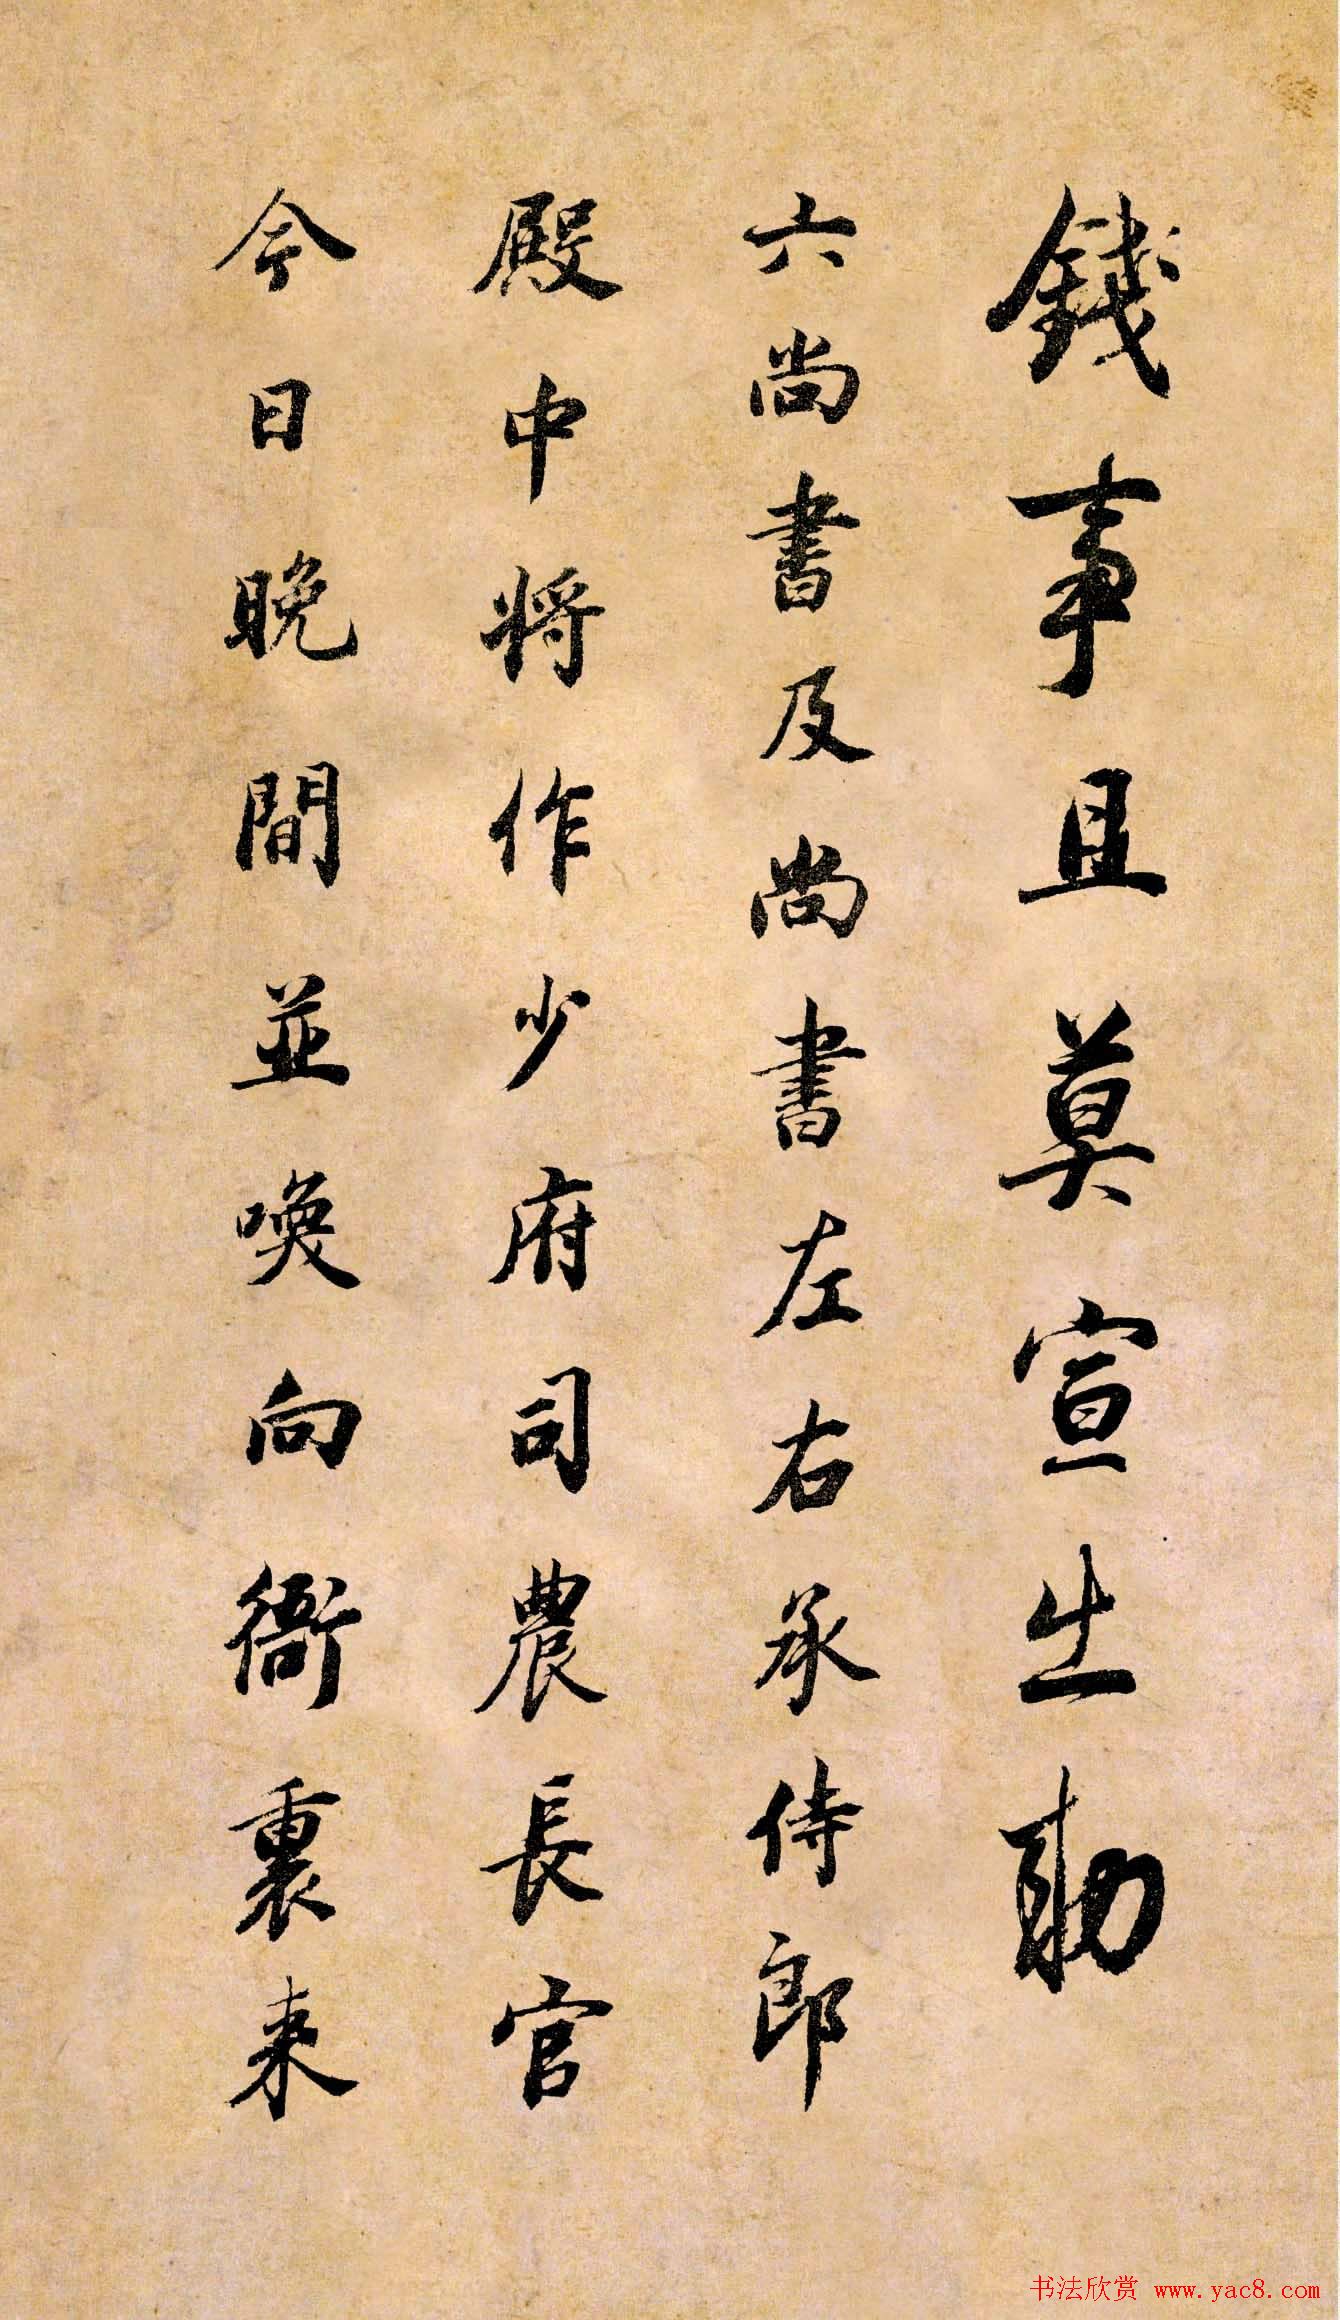 錢事且莫宣出勅
六尚書及尚書左右承侍郎
殿中将作少府司農長官
今日晚間並喚向衙裏来
书法欣赏 www.yac8.com